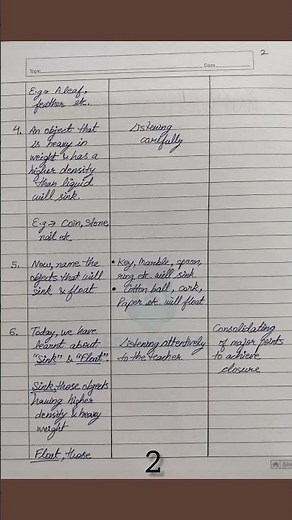 2
Topic
Date
E.g → A leaf,
feather etc.
4. An object that
is heavy in
weight & has a
higher density
than liquid
will sink.
Listening
carefully
E.g → Coin, Stone,
nail etc
5. Now, name the
objects that will
sink & float
• Key, Marble, spoon,
ring etc. will sink
• Cotton ball, cork,
Paper etc. will float
6. Today, we have
learnt about
"Sink" & "Float"
Listening attentively
to the teacher
Consolidating
of major points
to achieve
closure
Sink, those objects
having higher
density & heavy
weight
Float, those
2